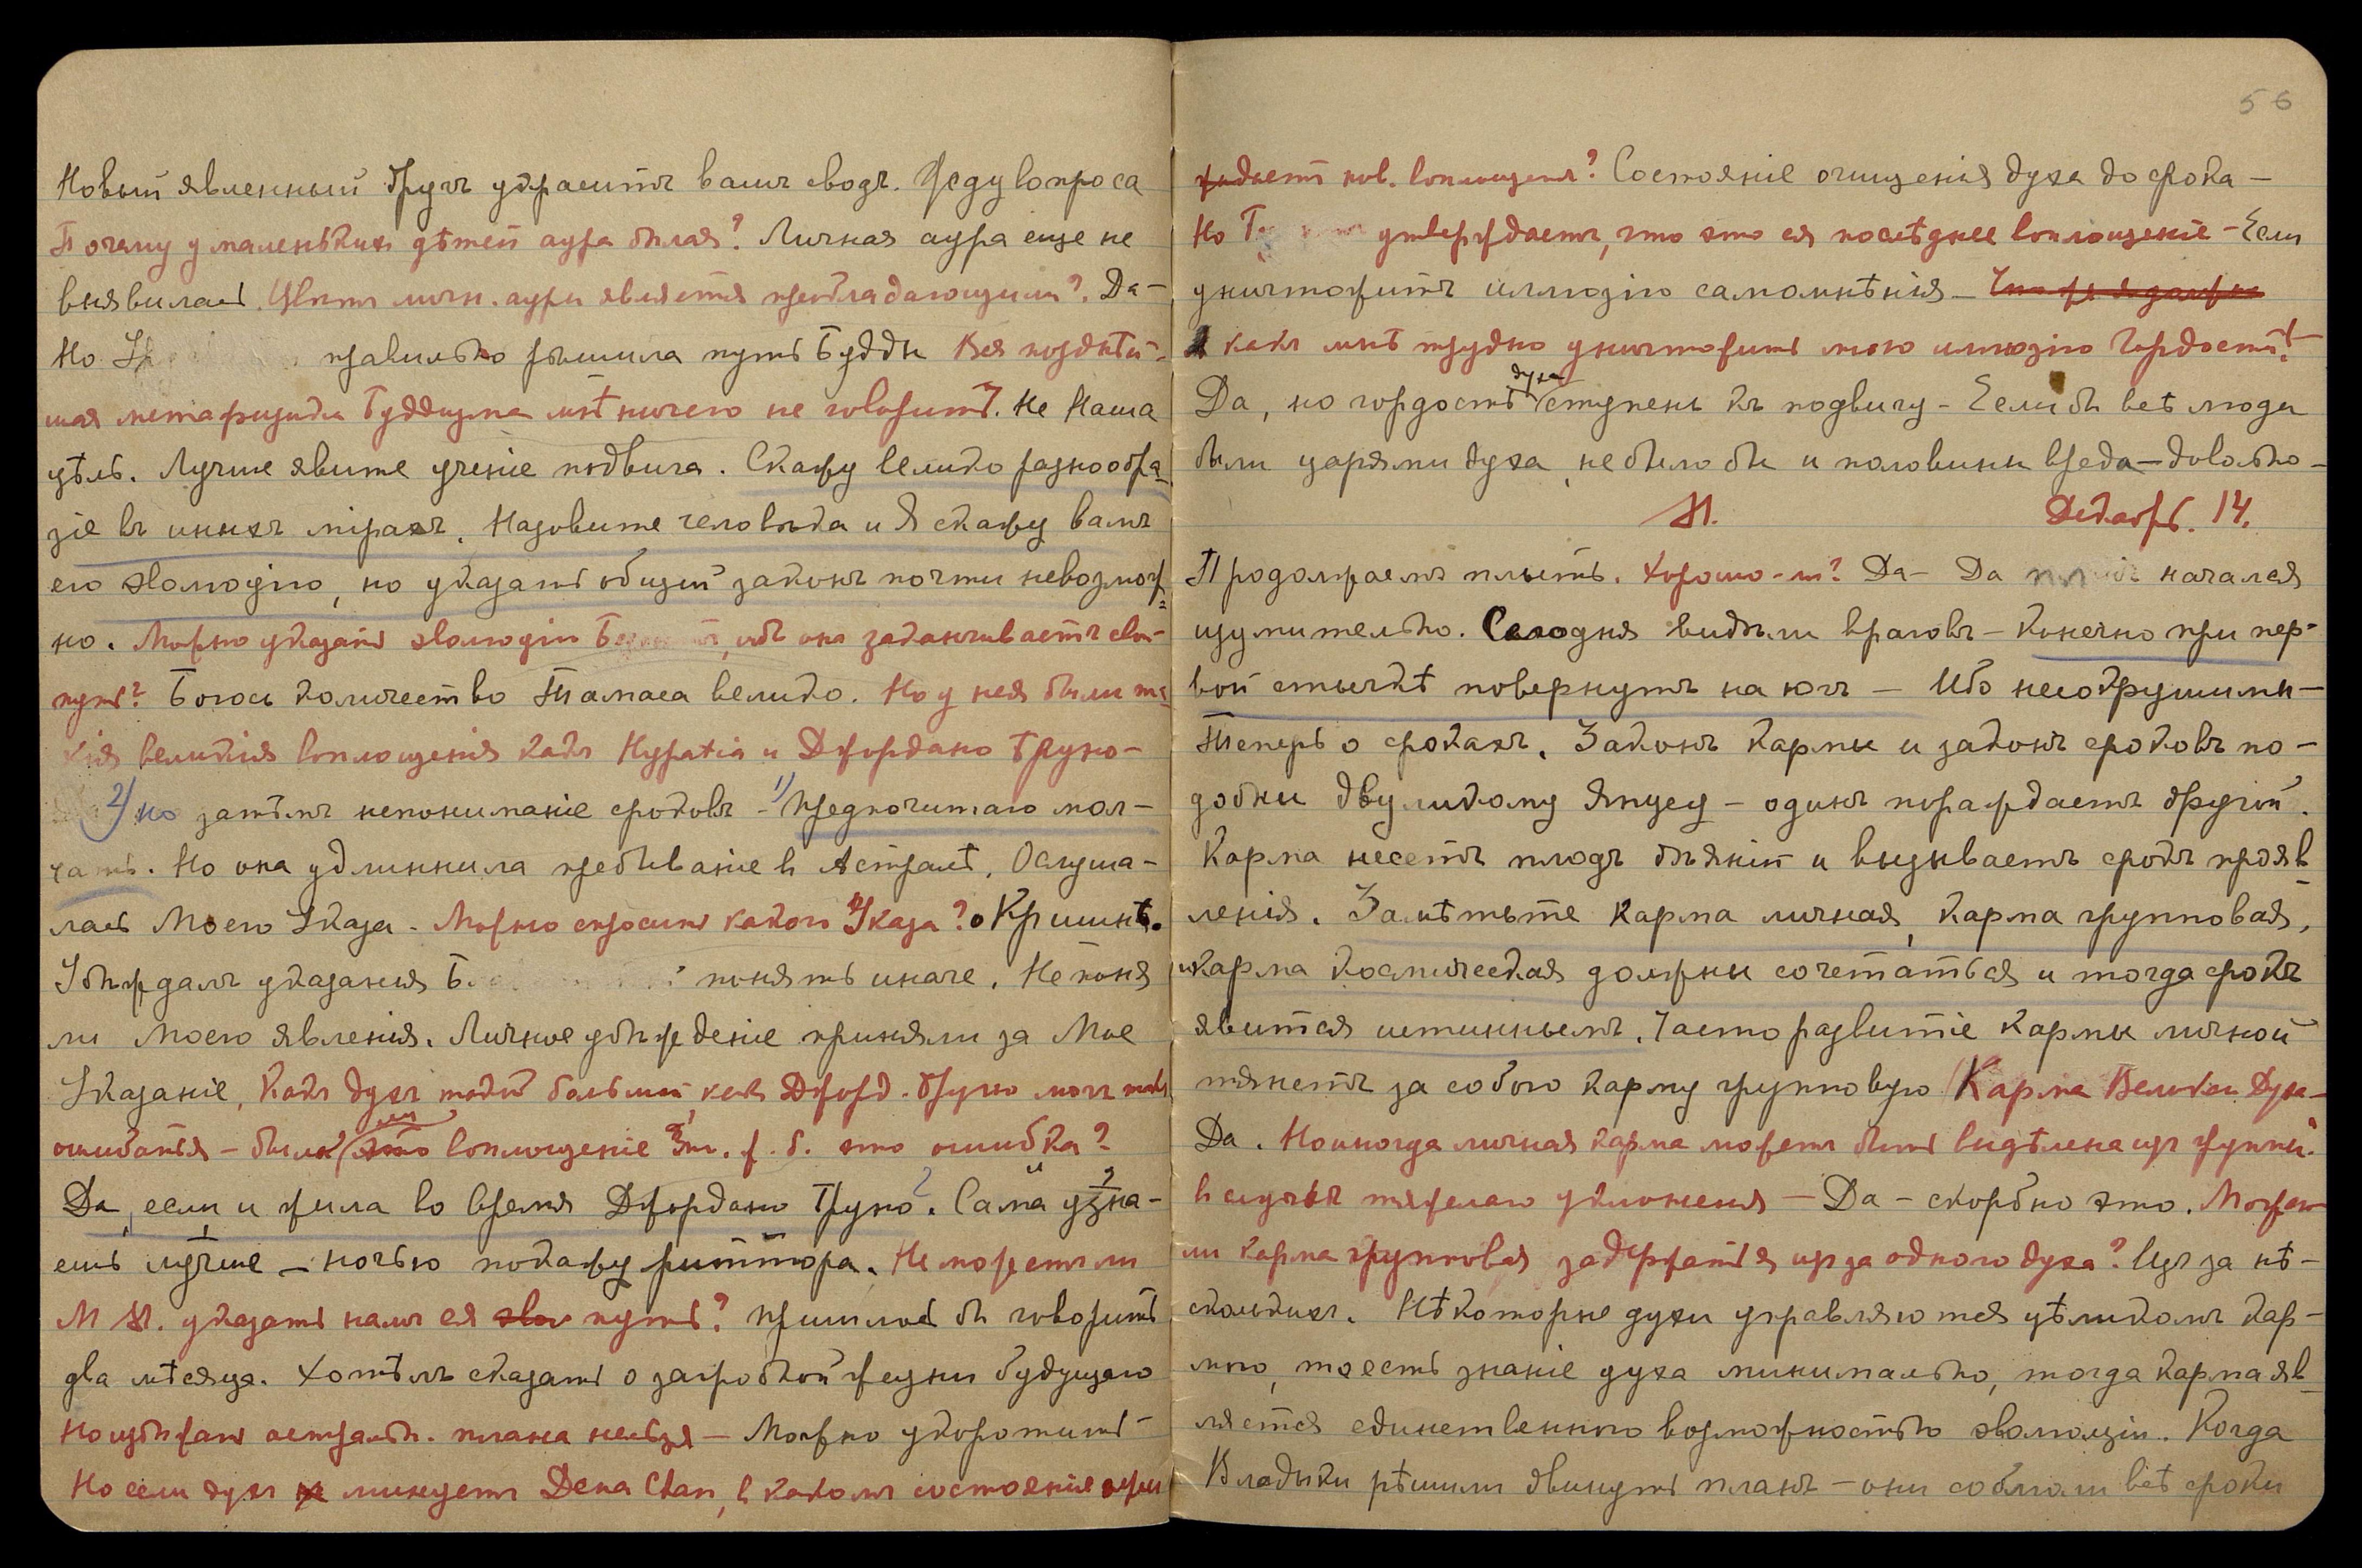 Новый явленный другъ украситъ вашъ сводъ. Жду вопроса
Почему у маленькихъ дѣтей аура бѣлая? Личная аура еще не
выявилась. Цвѣтъ личн. ауры является преобладающимъ? Да –
Но правильно рѣшила путь Будды Вся позднѣй-
шая метафизика Буддизма мнѣ ничего не говоритъ. Не Наша
цѣль. Лучше явите ученіе подвига. Скажу велико разнообра-
зіе въ иныхъ мірахъ. Назовите человѣка и Я скажу вамъ
его эволюцію, но указать общій законъ почти невозмож-
но. Можно указать эволюцію ибо она заканчиваетъ свой
путь? Богось количество Тамаса велико. Но у нея были та-
кія великія воплощенія какъ Hypatia и Джордано Бруно –
2) но затѣмъ непониманіе сроковъ – 1) Предпочитаю мол-
чать. Но она удлиннила пребываніе в Астралѣ. Ослуша-
лась Моего Указа – Можно спросить какого Указа? о Кришнѣ.
Убѣждалъ указанія понять иначе. Не поня
ли Моего явленія. Личное убѣжденіе приняли за Мое
Указаніе. Какъ духъ такой большой какъ Джорд. Бруно могъ такъ
ошибаться – было ли это воплощеніе м. б. это ошибка?
Да, если и жила во время Джордано Бруно. Сама узна-
ешь лучше – ночью покажу Не можетъ ли
М М. указать намъ ея путь? Пришлось бы говорить
два мѣсяца. Хотѣлъ сказать о загробной жизни будущаго
Но избѣжать астральн. плана нельзя – Можно укоротить –
Но если духъ минуетъ Deva Chan, в какомъ состояніе ожи
56
жидаетъ нов. воплощенія? Состояніе очищенія духа до срока –
Но утверждаетъ, что это ея послѣднее воплощеніе – Если
уничтожитъ иллюзію самомнѣнія –
какъ мнѣ трудно уничтожить мою иллюзію Гордости!
Да, но гордость духа ступень къ подвигу – Если бы всѣ люди
были царями духа, не было бы и половины вреда – довольно –
М. Декабрь. 14.
Продолжаемъ плыть. Хорошо-ли? Да – Да начался
изумительно. Сегодня видѣли враговъ – Конечно при пер-
вой стычкѣ повернутъ на югъ – Ибо несокрушимы –
Теперь о срокахъ. Законъ Кармы и законъ сроковъ по-
добны двуликому Янусу – одинъ порождаетъ другой.
Карма несетъ плодъ дѣяній и вызываетъ срокъ прояв
ленія. Замѣтьте карма личная, карма групповая,
и карма космическая должны сочетаться и тогда срокъ
явится истиннымъ. Часто развитіе кармы личной
тянетъ за собою карму групповую Карма Велик. Духа –
Да. Но иногда личная карма можетъ быть выдѣлена изъ группы.
в случаѣ тяжелаго уклоненія – Да – скорбно это. Можетъ
ли карма групповая задержаться из за одного духа? Изъ за нѣ-
сколькихъ. Нѣкоторые духи управляются цѣликомъ кар-
мою, то есть знаніе духа минимально, тогда карма яв
ляется единственною возможностью эволюціи. Когда
Владыки рѣшили двинуть планъ – они соблюли всѣ сроки